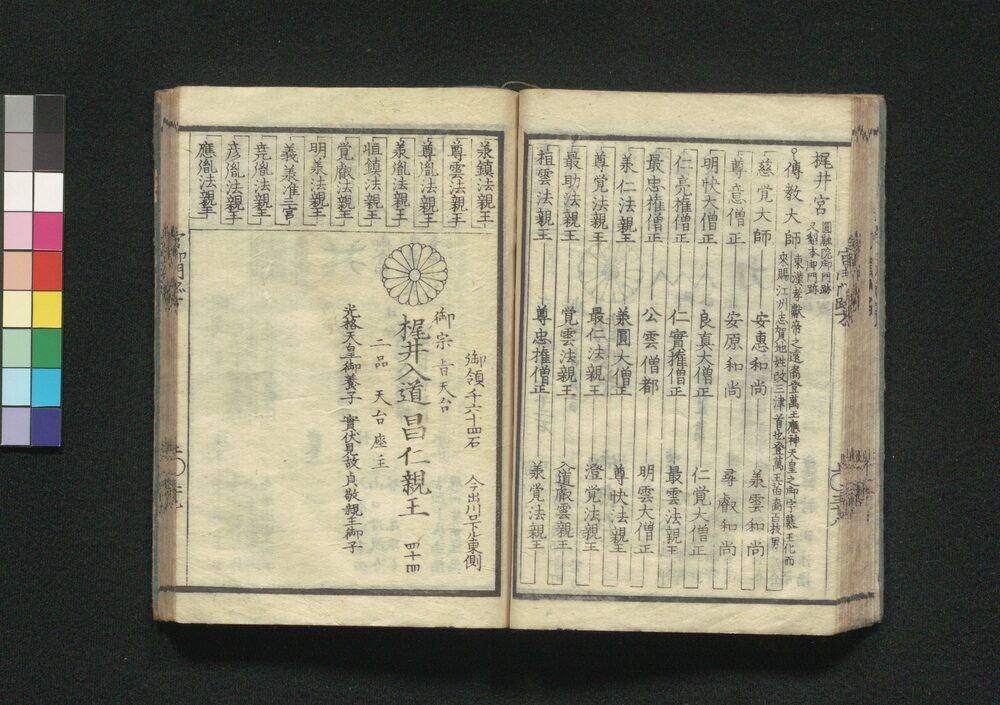 梶井宮
圓融院御門跡
又梨本御門跡
傳教大師
東漢孝獻帝之遠裔登萬王應神天皇之御宇慕王化而
來賜江州志賀地姓改三津首也登萬王苗裔百枝男
慈覺大師 安惠和尚 義雲和尚
尊意僧正 安原和尚 尋叡和尚
明快大僧正 良真大僧正 仁覚大僧正
仁亮権僧正 仁實権僧正 最雲法親王
最忠権僧正 公雲僧都 明雲大僧正
義仁法親王 義圓大僧正 尊快法親王
尊覚法親王 最仁法親王 澄覚法親王
最助法親王 覚雲法親王 入道叡雲親王
桓雲法親王 尊忠権僧正 義覚法親王
義鎮法親王
尊雲法親王
尊胤法親王
義胤法親王
恒鎮法親王
覚叡法親王
明義法親王
義義准三宮
尭胤法親王
彦胤法親王
應胤法親王
御領千六十四石 今出川口下ル東側
御宗旨天台
梶井入道昌仁親王 四十四
二品 天台座主
光格天皇御養子 實伏見故貞敬親王御子